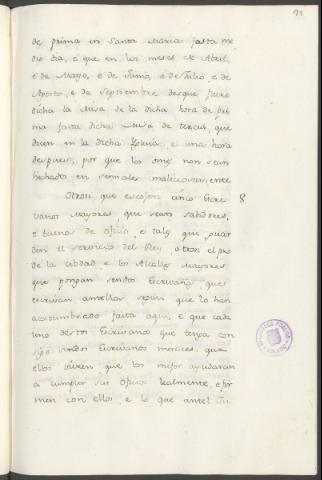 91
de prima in Santa Maria fasta me
dio dia, e que en los meses de Abril,
e de Mayo, e de Junio, e de Julio, e de
Agosto, e de Septiembre desque fuere
dicha la Misa de la dicha hora de pri
ma fasta dicha Misa de tercia, que
dicen en la dicha Eglesia, e una hora
despues, por que los omes non sean
hechados en señales maliciosamente
Otrosi que escojan cinco Escri 8
vanos mayores que sean sabidores,
e buenos de oficio, e tales que guar
den el servicio del Rey, otrosi el pro
de la cibdad, e los Alcalles mayores
que pongan sendos Escrivanos, que
escrivan antellos segun que lo han
acostumbrado fasta aqui, e que cada
uno destos Escrivanos que tenga con
sigo sendos Escrivanos menores, que
ellos vieren que los mejor ayudaran
a cumplir sus oficios lealmente, e fir
men con ellos, e lo que antel Ju